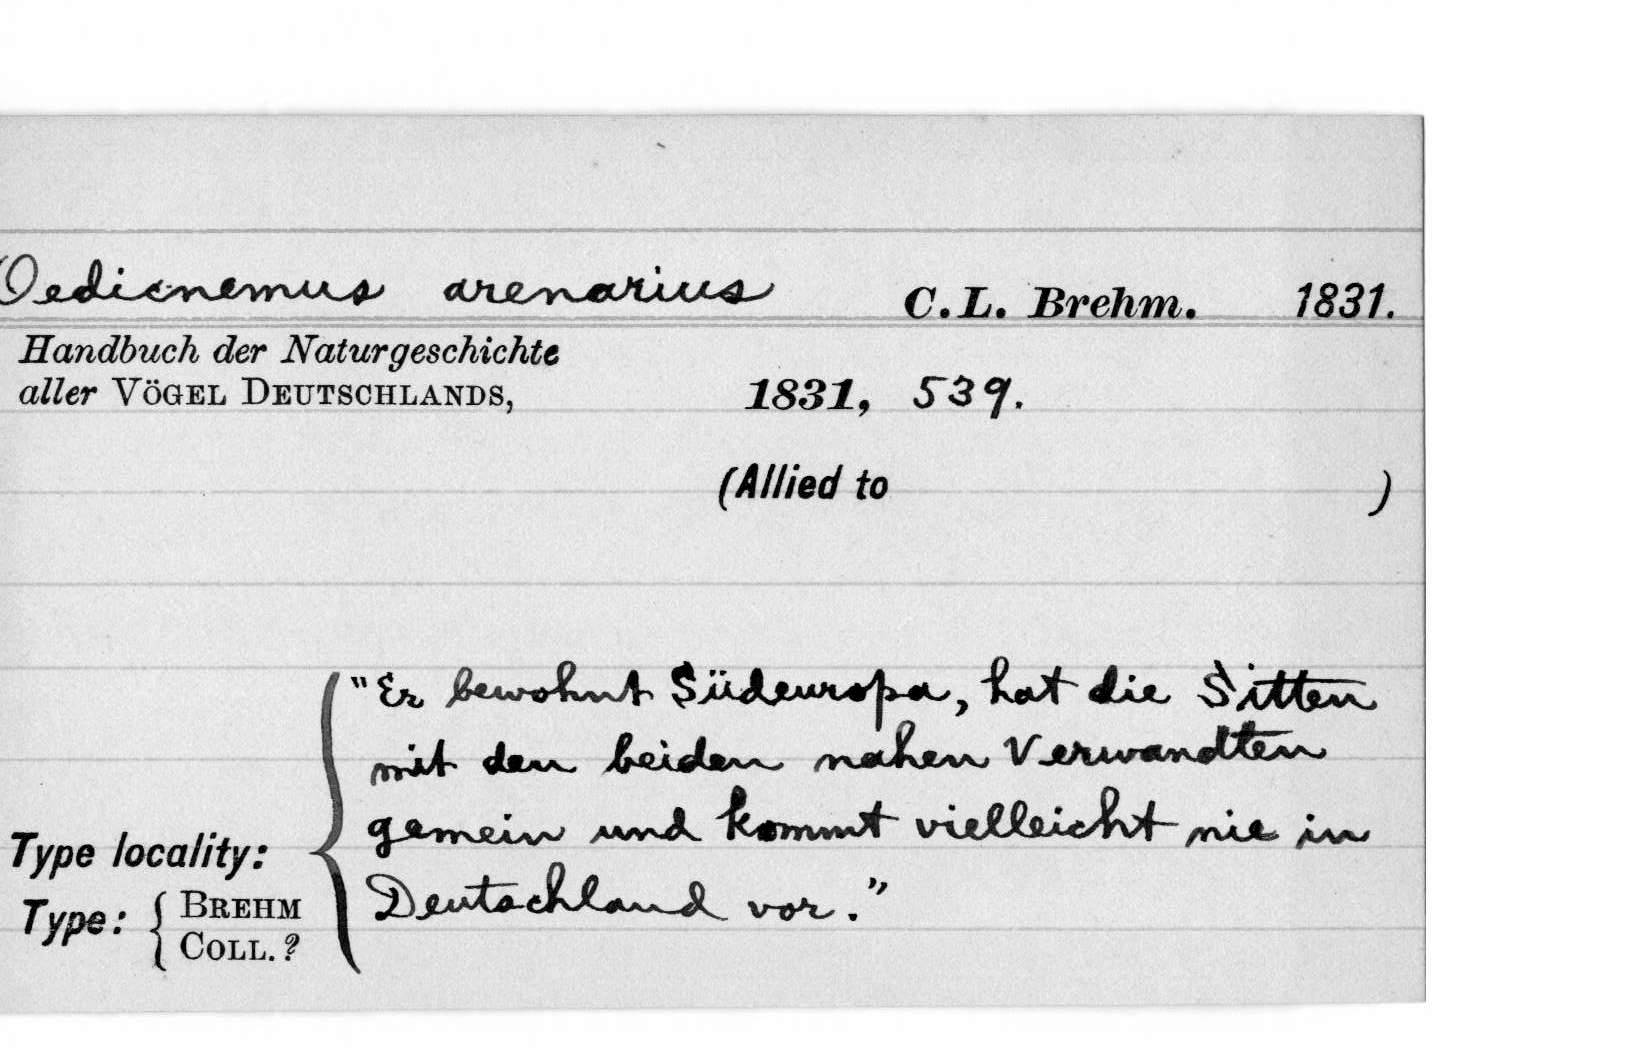 Oedicnemus arenarius C.L. Brehm. 1831.
Handbuch der Naturgeschichte
aller Vögel Deutschlands, 1831, 539.
(Allied to )
"Er bewohnt Südeuropa, hat die Sitten
mit den beiden nahen Verwandten
gemein und kommt vielleicht nie in
Deutschland vor."
Type locality:
Type: { Brehm
Coll.?